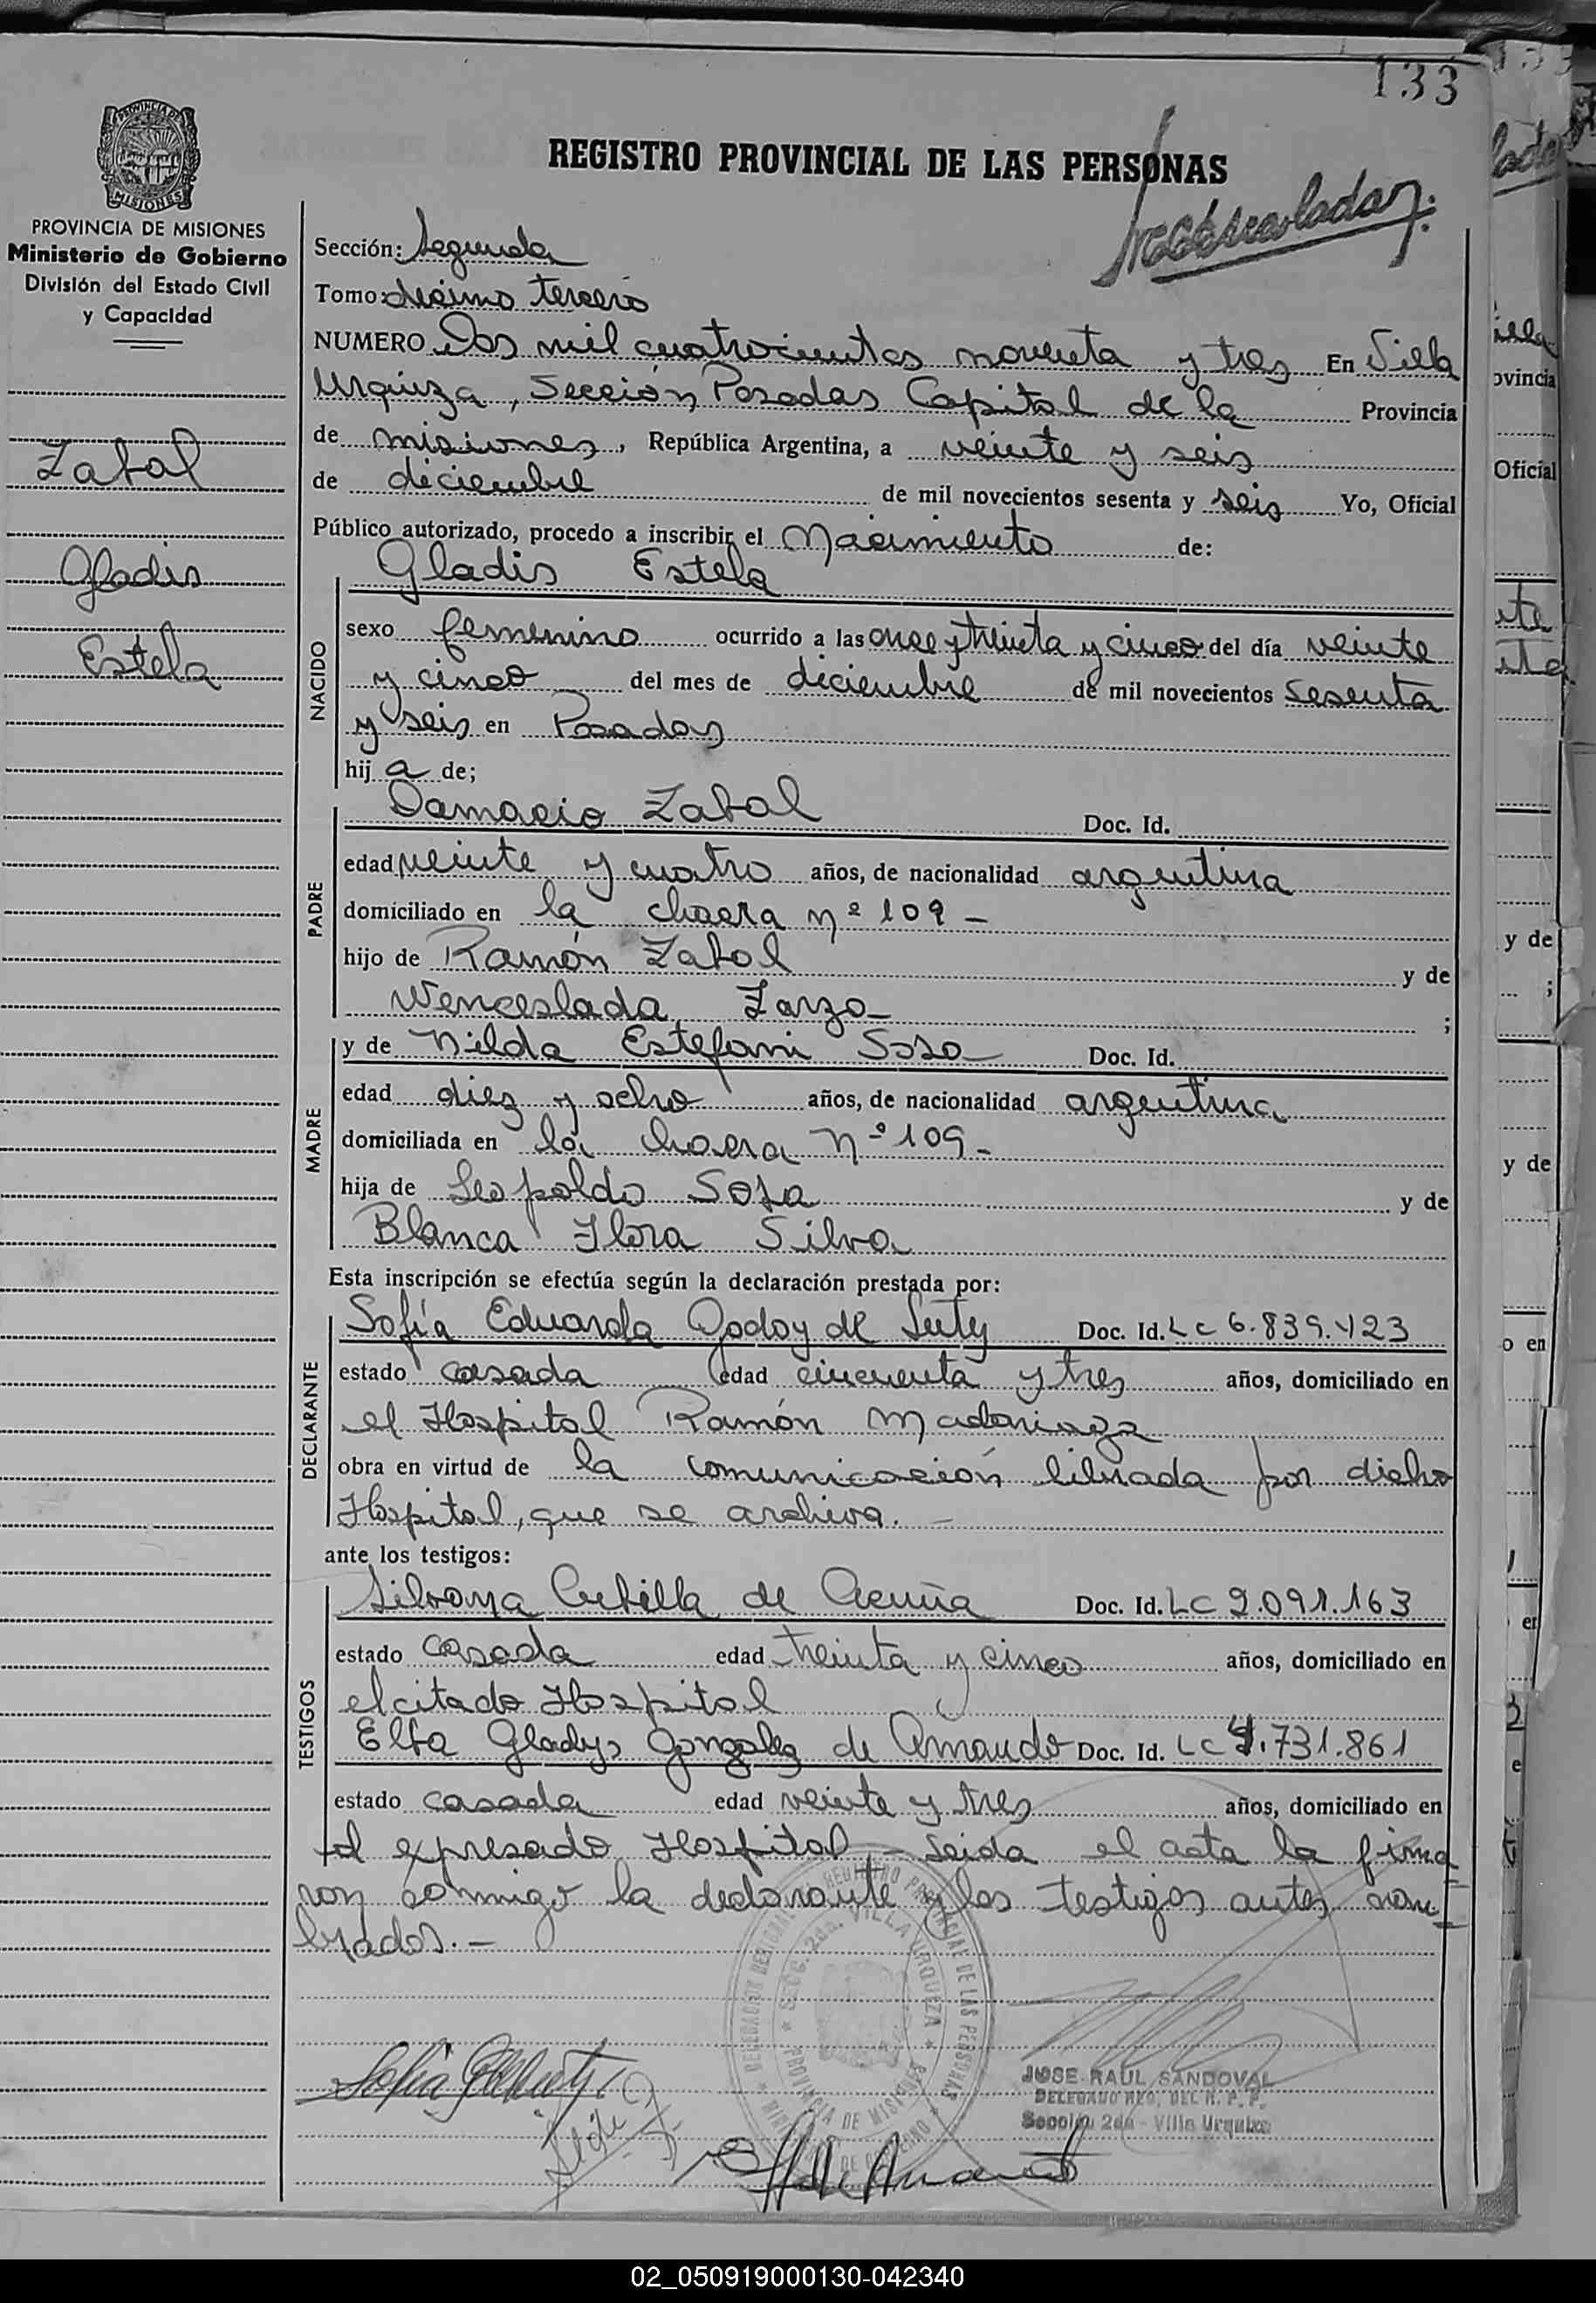 133
REGISTRO PROVINCIAL DE LAS PERSONAS
PROVINCIA DE MISIONES
Ministerio de Gobierno
División del Estado Civil
y Capacidad
Zabal
Gladis
Estela
Sección: Segunda
Tomo: décimo tercero
NUMERO Dos mil cuatrocientos noventa y tres En Villa
Urquiza, Sección Posadas Capital de la Provincia
de misiones, República Argentina, a veinte y seis
de diciembre de mil novecientos sesenta y seis Yo, Oficial
Público autorizado, procedo a inscribir el Nacimiento de:
Gladis Estela
NACIDO
sexo femenino ocurrido a las once y treinta y cinco del día veinte
y cinco del mes de diciembre de mil novecientos sesenta
y seis en Posadas
hij a de;
PADRE
Damacio Zabal Doc. Id.
edad veinte y cuatro años, de nacionalidad argentina
domiciliado en la chacra nº 109 -
hijo de Ramón Zabal y de
Wenceslada Zarzo ;
MADRE
y de Nilda Estefani Sosa Doc. Id.
edad diez y ocho años, de nacionalidad argentina
domiciliada en la chacra Nº 109 -
hija de Leopoldo Sosa y de
Blanca Flora Silva
Esta inscripción se efectúa según la declaración prestada por:
DECLARANTE
Sofía Eduarda Godoy de Doc. Id. LC 6.839.423
estado casada edad cincuenta y tres años, domiciliado en
el Hospital Ramón Madariaga
obra en virtud de la comunicación librada por dicho
Hospital, que se archiva. -
ante los testigos:
TESTIGOS
Silvana de Acuña Doc. Id. LC 9.091.163
estado casada edad treinta y cinco años, domiciliado en
el citado Hospital
Elba Gladys Gonzalez de Amando Doc. Id. LC 4.731.861
estado casada edad veinte y tres años, domiciliado en
el expresado Hospital - Leida el acta la firma
ron conmigo la declarante y los testigos antes nom
brados. -
JOSE RAUL SANDOVAL
DELEGADO REG. DEL R. P. P.
Sección 2da - Villa Urquiza
02_050919000130-042340